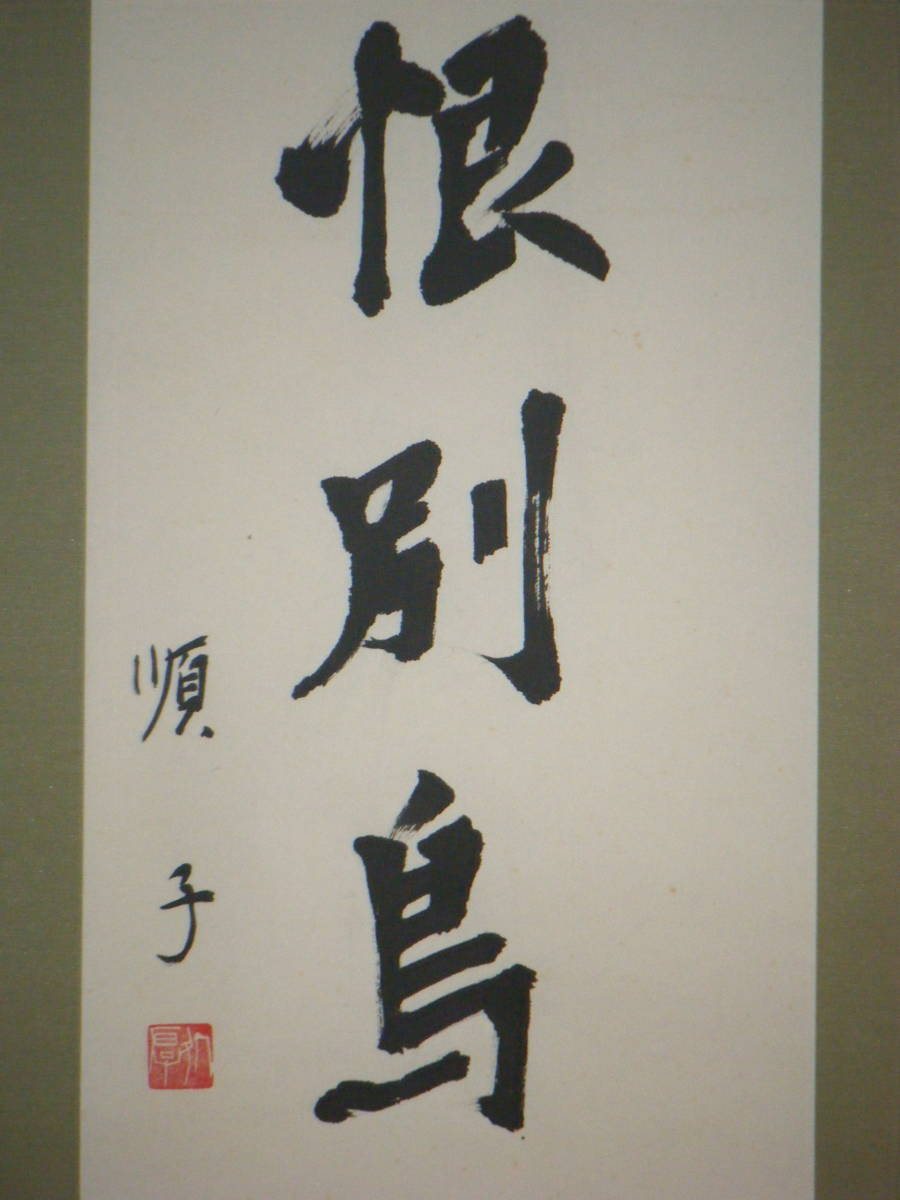 恨別鳥
順子